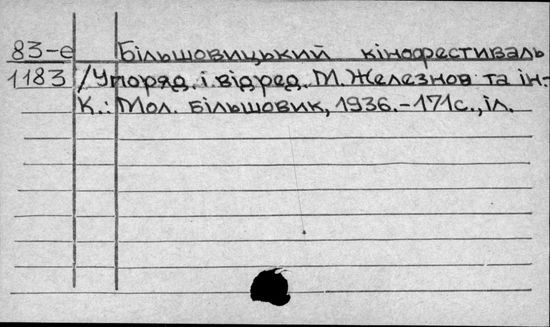 83-е Більшовицький кінофестиваль
1183 /Упоряд. і відред. М. Железнов та ін.-
К.: Мол. більшовик, 1936.-171с., іл.